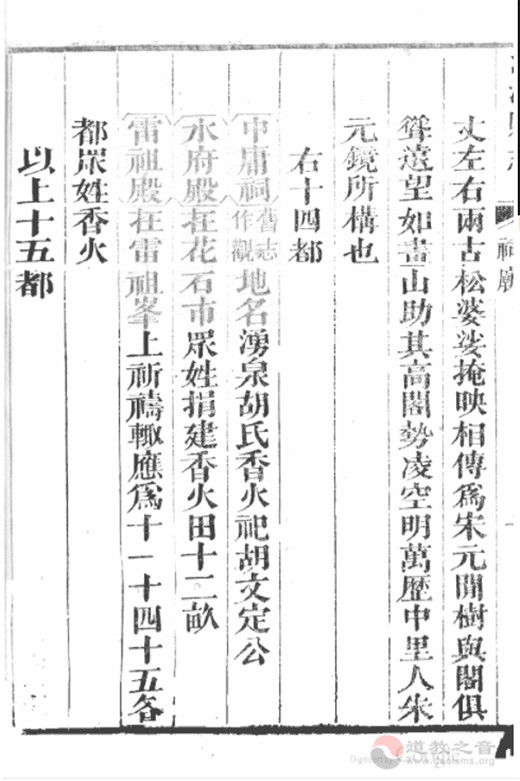 祠廟
丈左右兩古松婆娑掩映相傳為宋元間樹與閣俱
聳遠望如畫山助其高閣勢凌空明萬歷中里人朱
元鏡所構也
右十四都
中庸祠舊志作觀地名湧泉胡氏香火祀胡文定公
水府殿在花石市眾姓捐建香火田十二畝
雷祖殿在雷祖峯上祈禱輙應為十一十四十五各
都眾姓香火
以上十五都
道教之音
www.daoisms.org